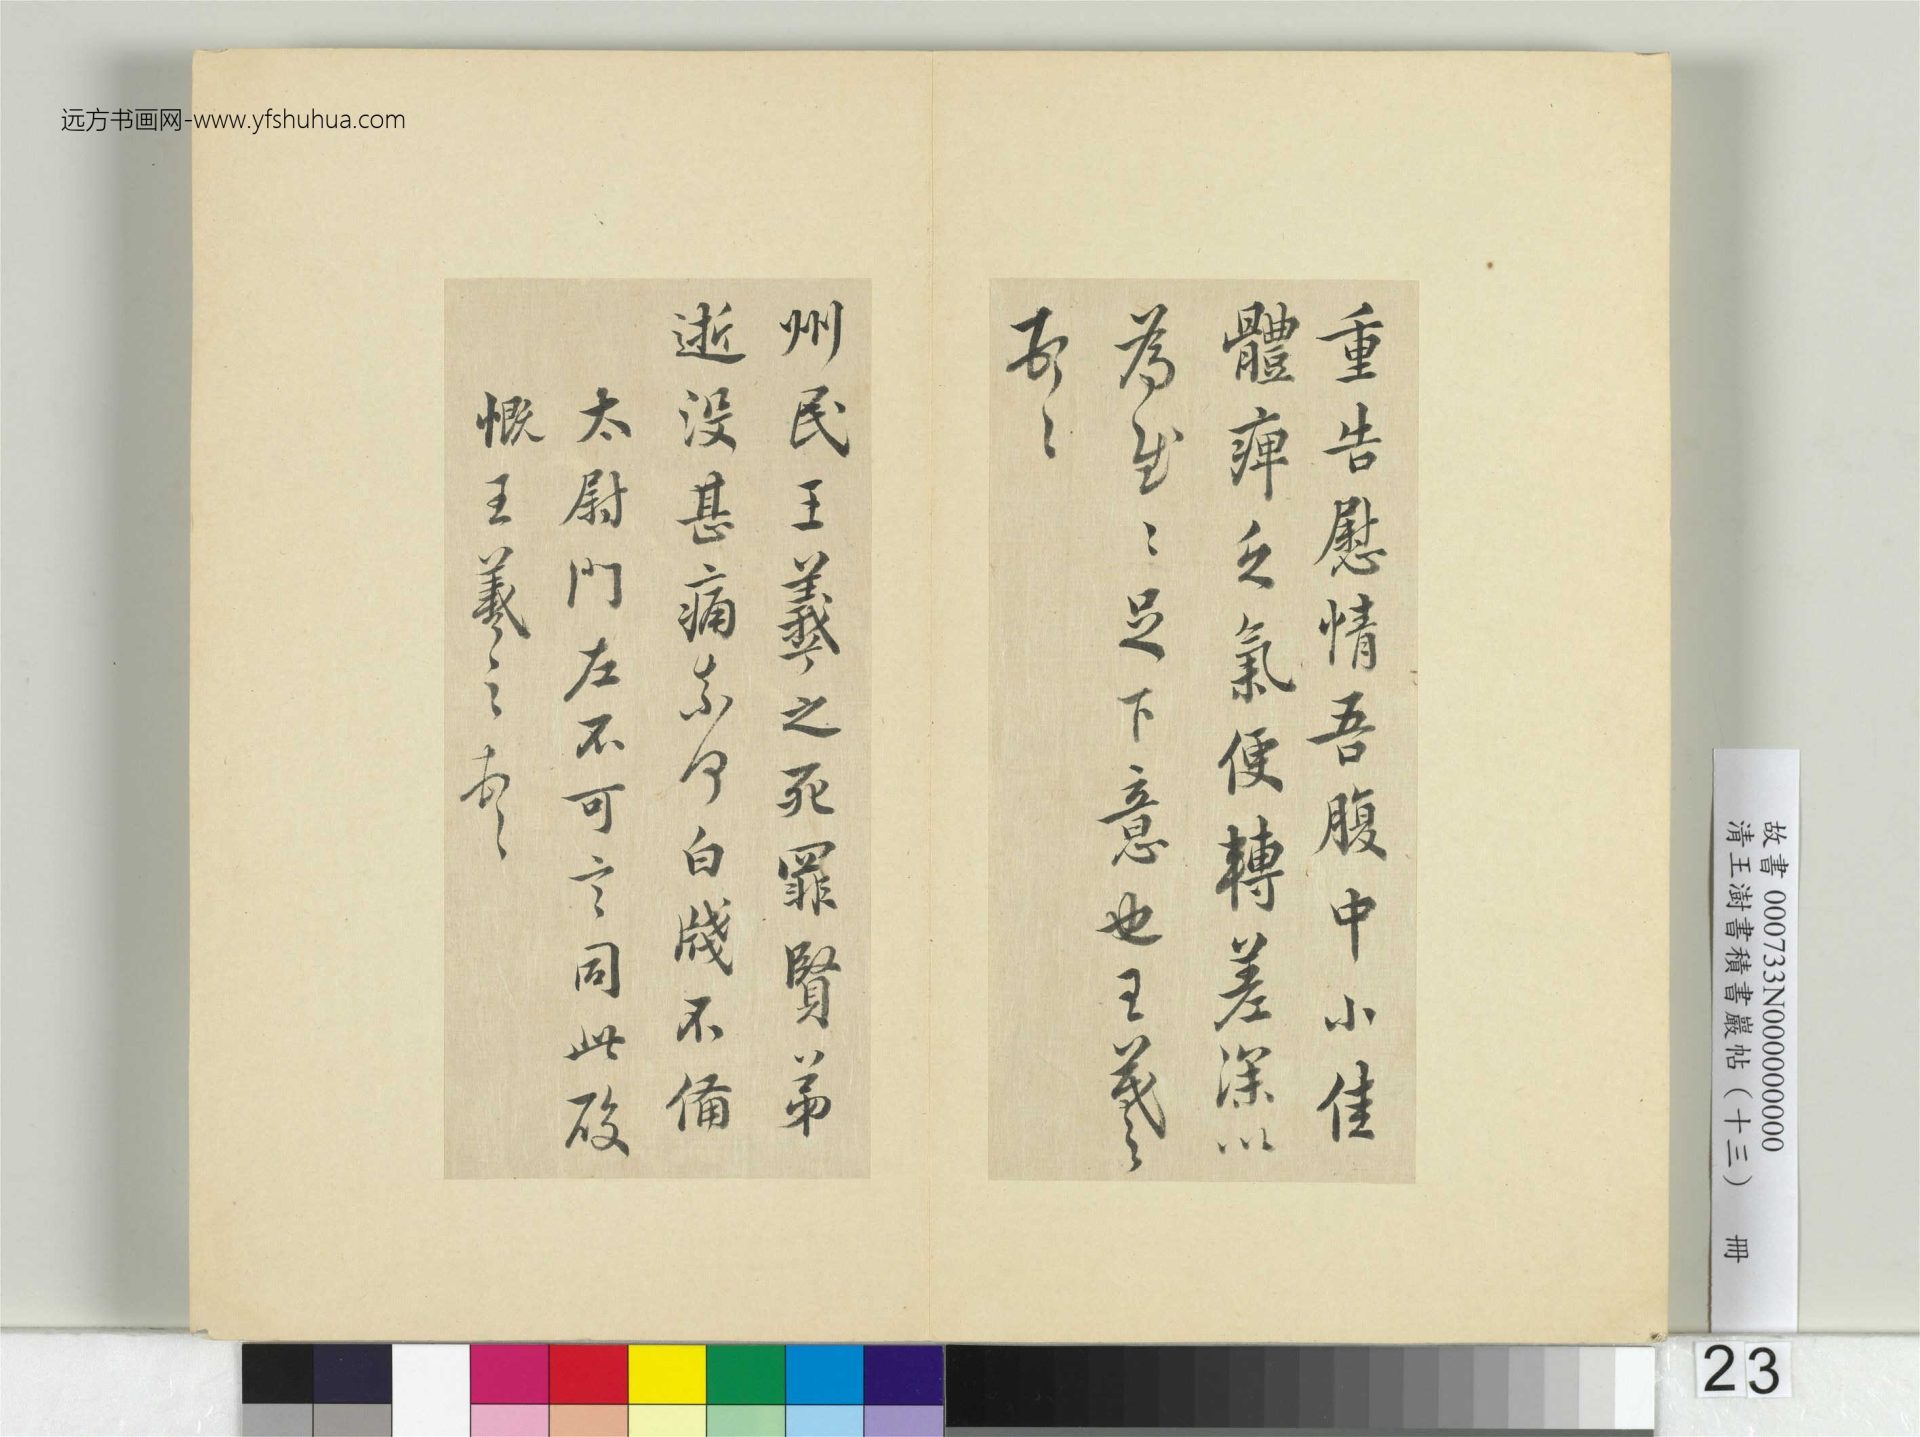 远方书画网-www.yfshuhua.com
重告慰情吾腹中小佳
體痺乏氣便轉差深以
為慰〻足下意也王羲之
頓〻
州民王羲之死罪賢弟
逝没甚痛奈何白牋不備
太尉門左不可言同此酸
慨王羲之頓〻
故書000733N000000000
清王澍書積書巖帖（十三） 冊
23